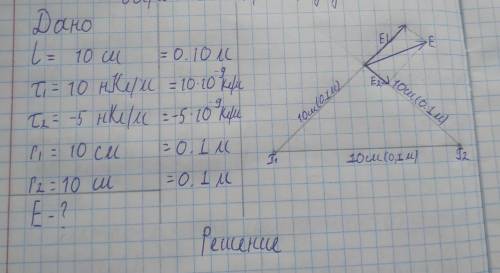 Дано
l = 10 см = 0.10 м
τ1 = 10 нКл/м = 10·10⁻⁹ Кл/м
τ2 = -5 нКл/м = -5·10⁻⁹ Кл/м
r1 = 10 см = 0.1 м
r2 = 10 см = 0.1 м
E - ?
Решение
E1
E
E2
10см(0,1м)
10см(0,1м)
τ1
10см(0,1м)
τ2